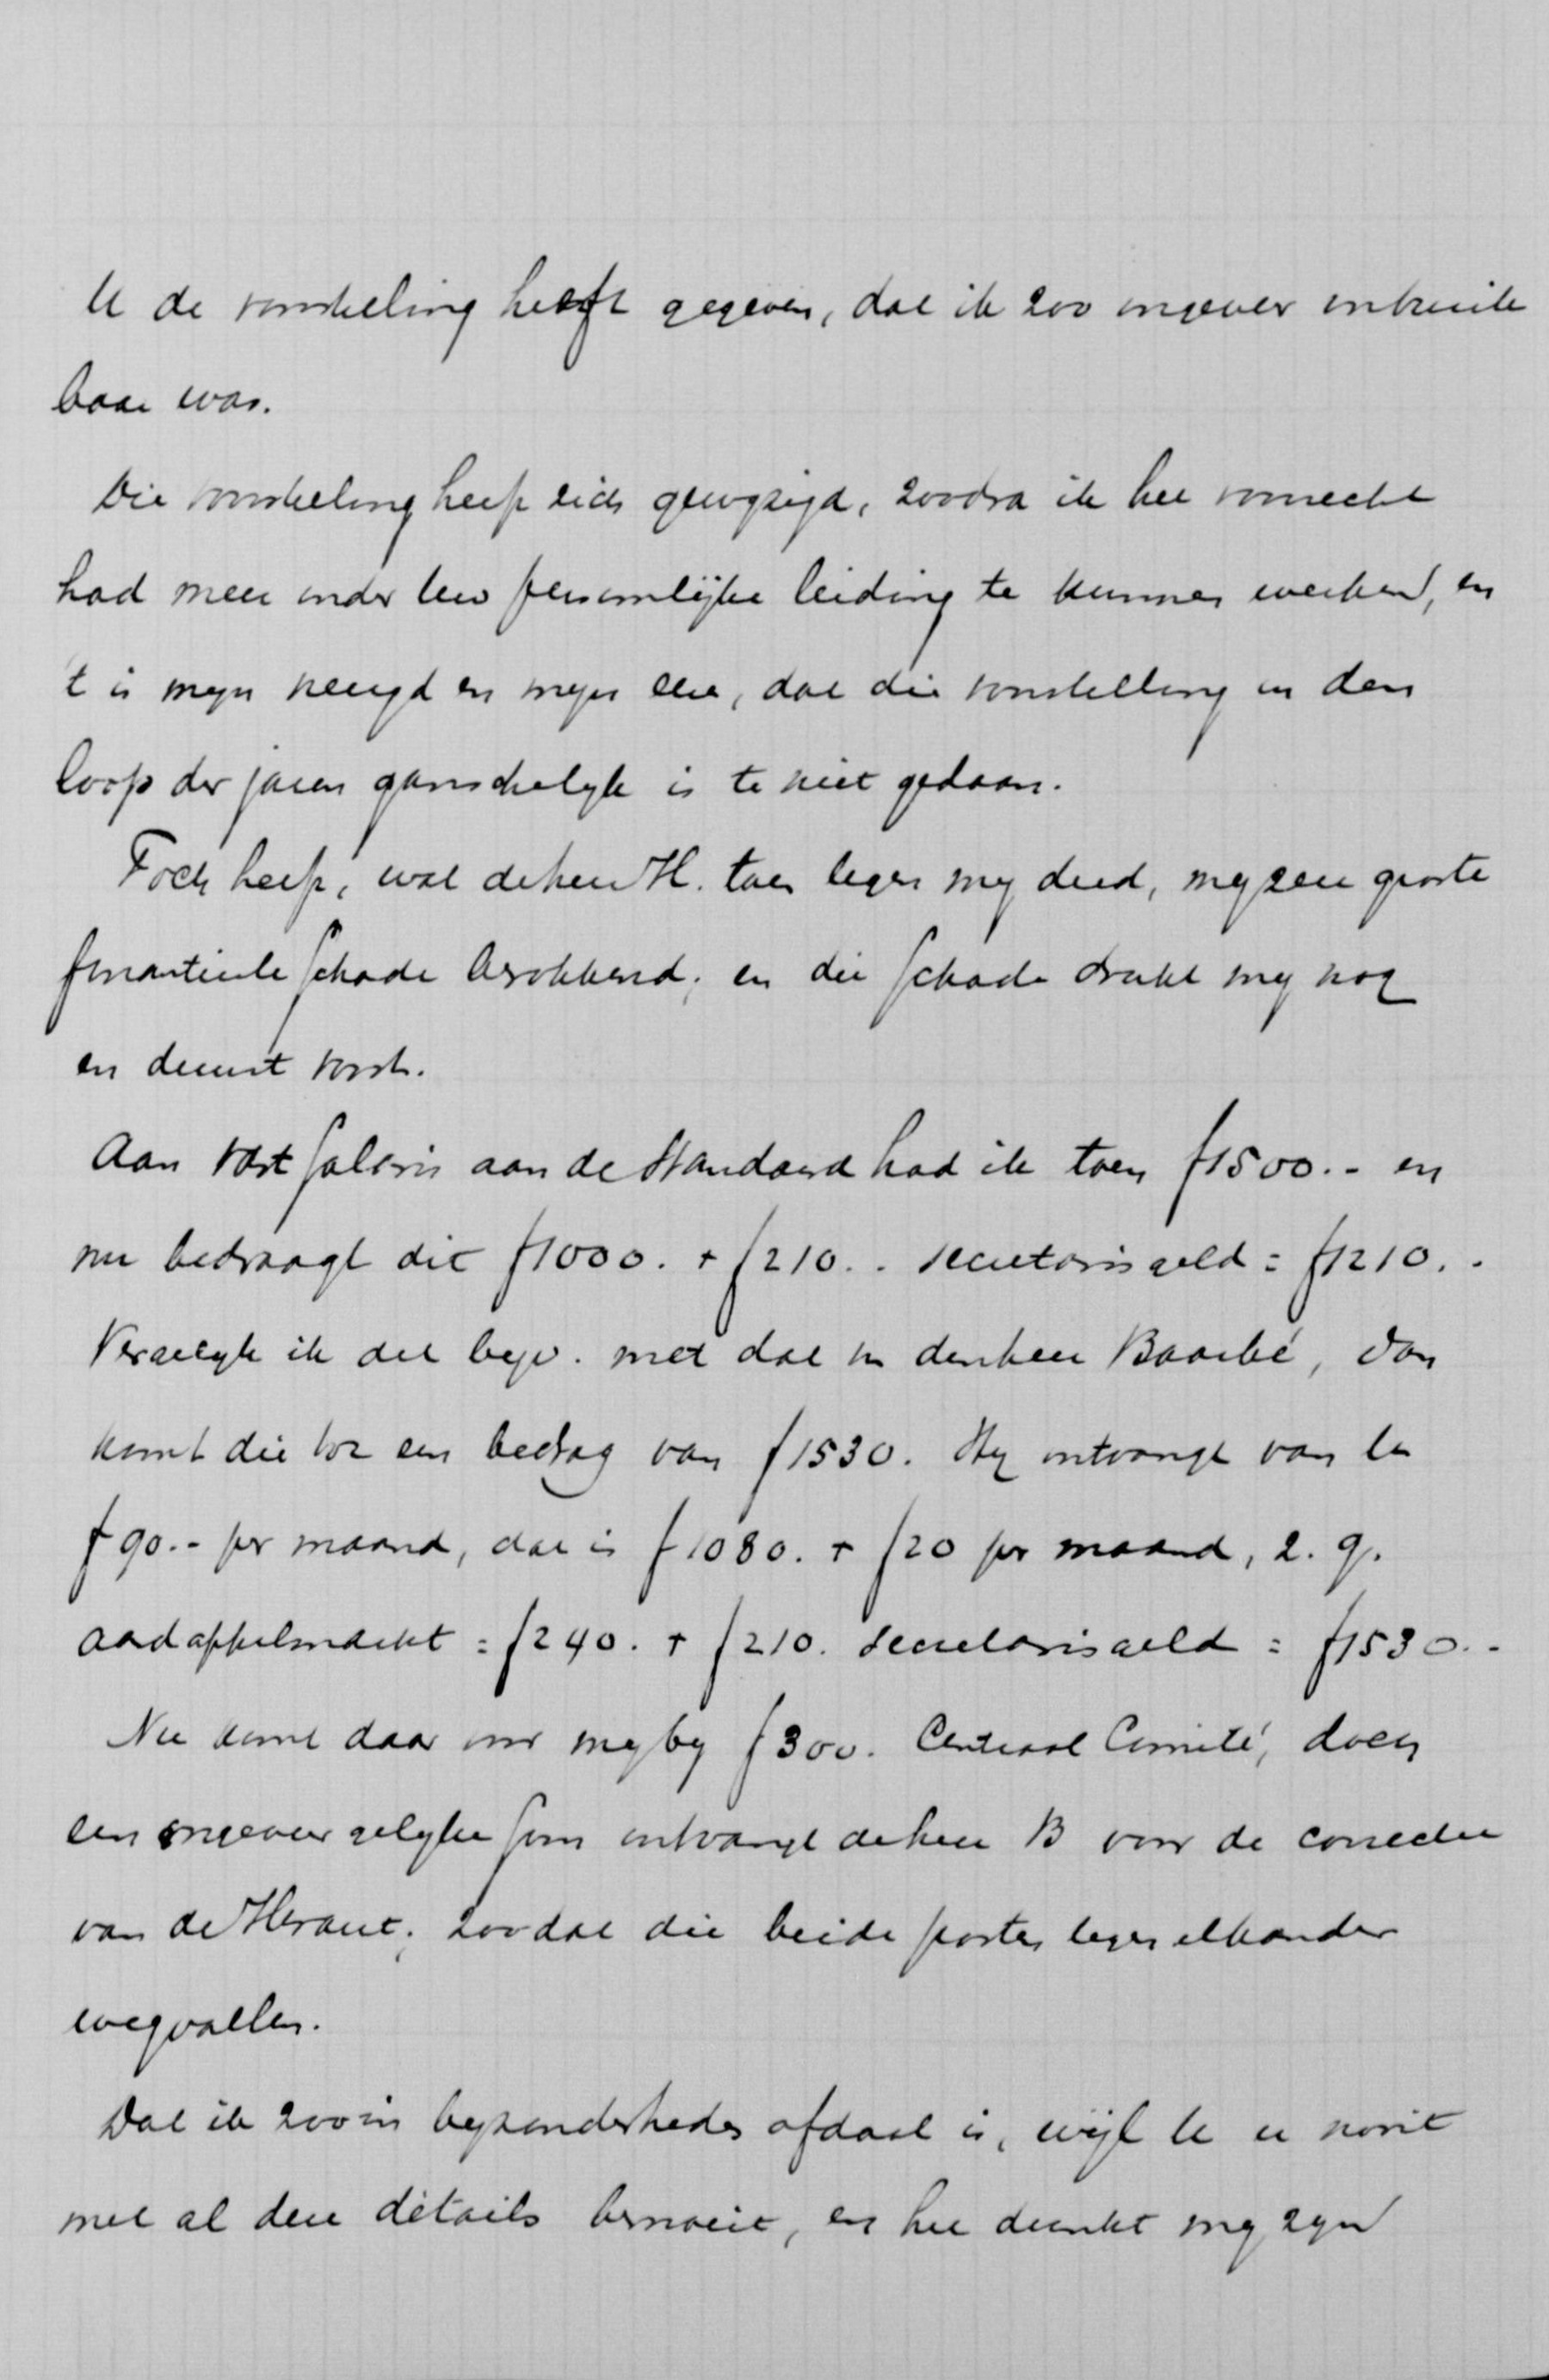 U de voorstelling heeft gegeven, dat ik zoo ongeveer onbruik
baar was.
Die voorstelling heeft zich gewyzigd, zoodra ik het voorrecht
had meer onder Uw persoonlijke leiding te kunnen werken, en
't is myn vreugd en myn eer, dat die voorstelling in den
loop der jaren ganschelyk is te niet gedaan.
Toch heeft, wat de heer H. toen tegen my deed, my zeer groote
financieele schade berokkend; en die schade drukt my nog
en duurt voort.
Aan vast salaris aan de Standaard had ik toen f1500.- en
nu bedraagt dit f1000. + f210.- secretarisgeld = f1210.-
Vergelyk ik dit byv. met dat v. den heer Baarbé, dan
komt die tot een bedrag van f1530. Hy ontvangt van U
f90.- per maand, dat is f1080. + f20 per maand, z. g.
aardappelmarkt = f240. + f210. secretarisgeld = f1530.-
Nu komt daar voor my by f300. Centraal Comité, doch
een ongeveer gelyke som ontvangt de heer B voor de correctie
van de Heraut; zoodat die beide posten tegen elkander
wegvallen.
Dat ik zoo in byzonderheden afdaal is, wijl U er nooit
met al deze détails bemoeit, en het dunkt my zyn